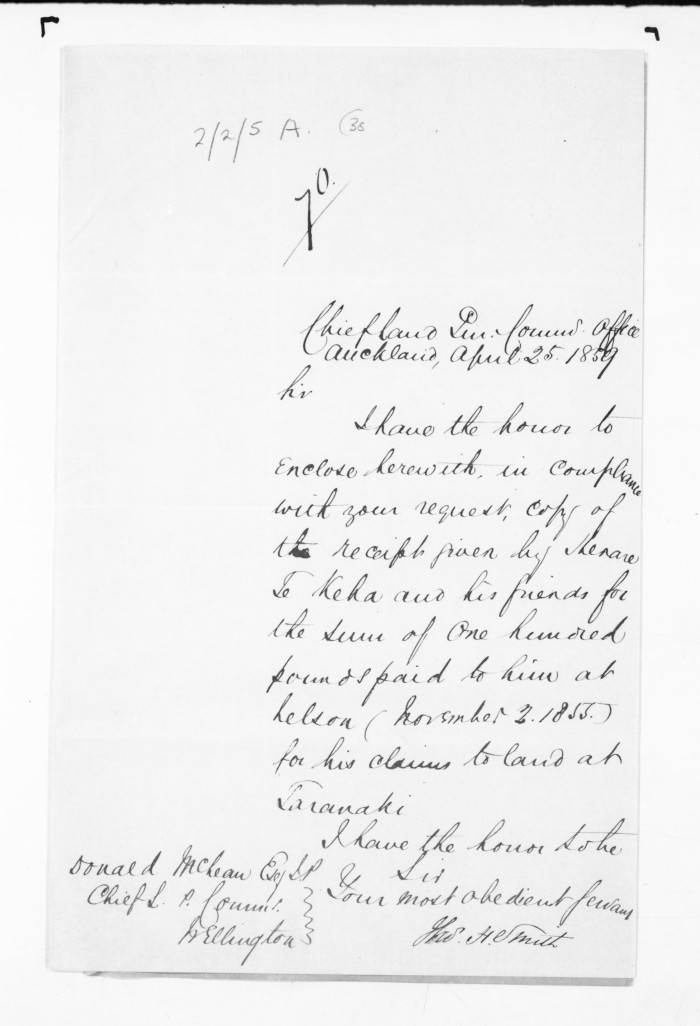 2/2/5 A. (38
70.
Chief Land Pur. Commr. Office
Auckland, April 25. 1859
Sir
I have the honor to
Enclose herewith, in compliance
with your request, copy of
the receipt given by Henare
Te Keha and his friends for
the sum of One hundred
pounds paid to him at
Nelson (November 2. 1855.)
for his claims to land at
Taranaki
I have the honor to be
Sir
Your most obedient Servant
Thos. H. Smith
Donald McLean Esq J.P.
Chief L. P. Commr.
Wellington